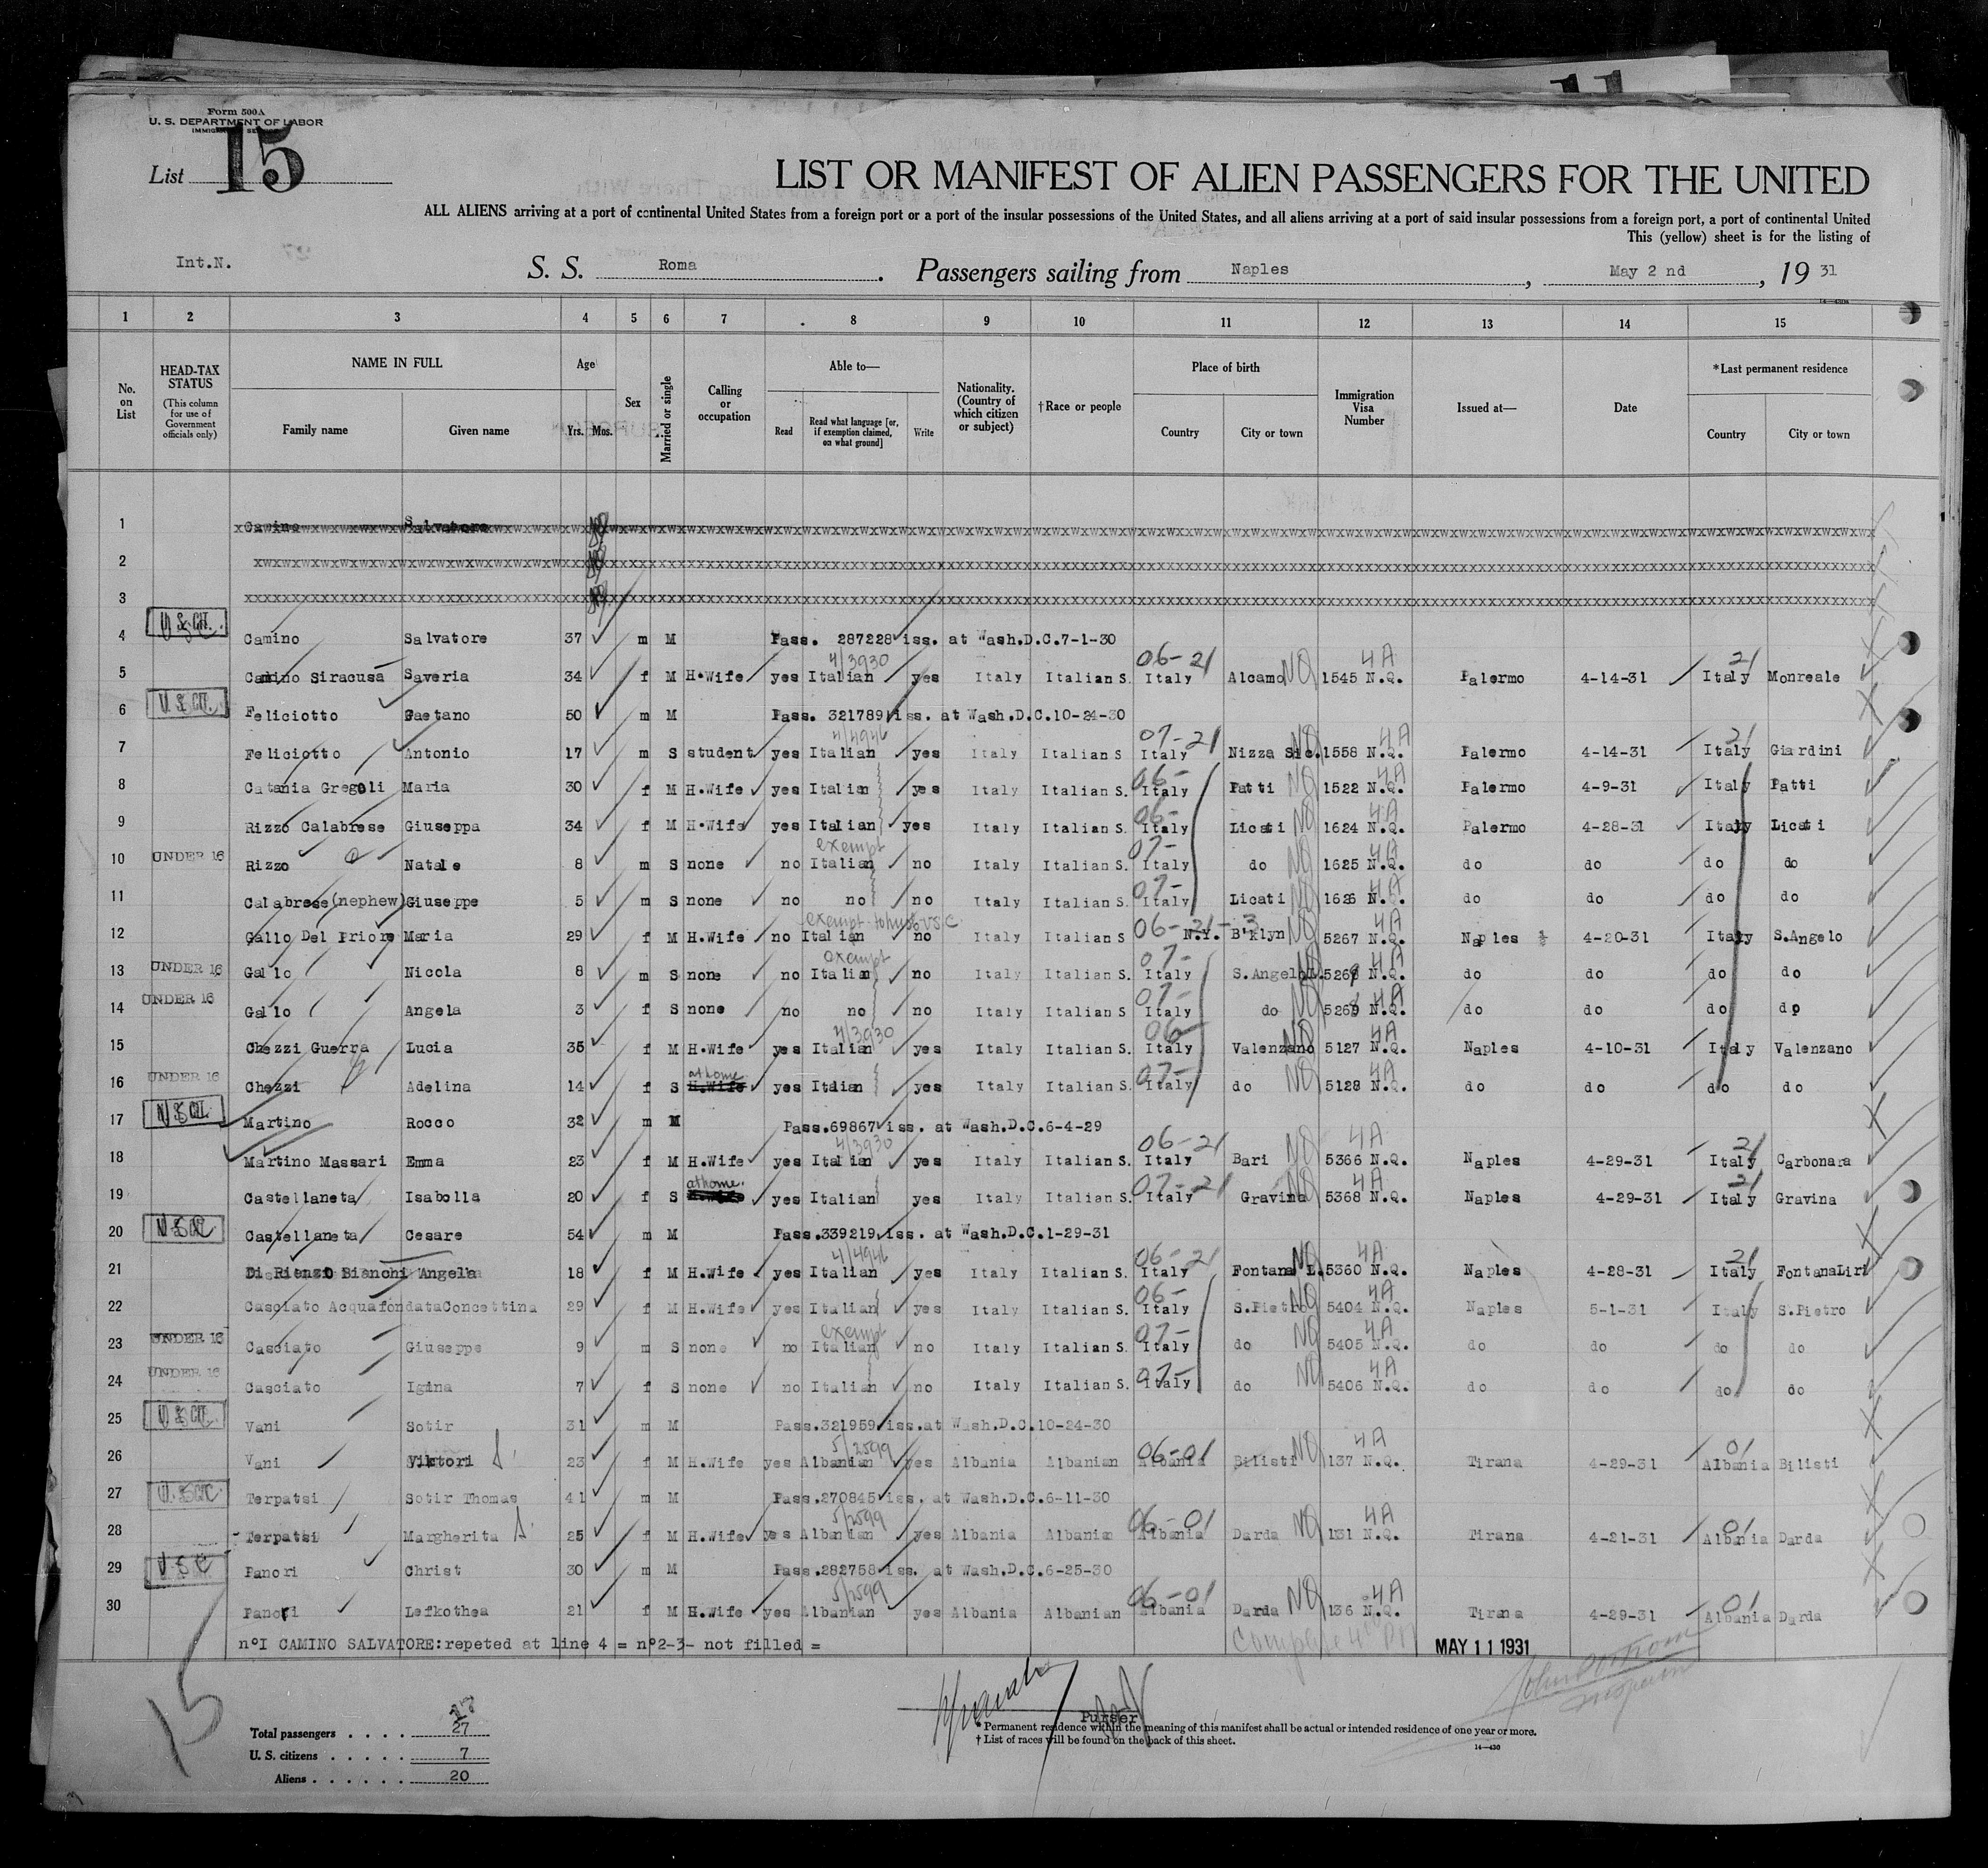 Form 500A
U. S. DEPARTMENT OF LABOR
List 15
LIST OR MANIFEST OF ALIEN PASSENGERS FOR THE UNITED
ALL ALIENS arriving at a port of continental United States from a foreign port or a port of the insular possessions of the United States, and all aliens arriving at a port of said insular possessions from a foreign port, a port of continental United
This (yellow) sheet is for the listing of
Int.N. S. S. Roma . Passengers sailing from Naples , May 2 nd , 19 31
1 2 3 4 5 6 7 8 9 10 11 12 13 14 15
No. on List
HEAD-TAX STATUS (This column for use of Government officials only)
NAME IN FULL Family name Given name
Age Yrs. Mos.
Sex
Married or single
Calling or occupation
Able to— Read Read what language [or, if exemption claimed, on what ground] Write
Nationality. (Country of which citizen or subject)
†Race or people
Place of birth Country City or town
Immigration Visa Number
Issued at—
Date
*Last permanent residence Country City or town
1 Camino Salvatore
2
3
4 U.S. CIT. Camino Salvatore 37 m M Pass. 287228 iss. at Wash.D.C.7-1-30
5 Camino Siracusa Saveria 34 f M H.Wife yes Italian 4/3930 yes Italy Italian S. Italy 06-21 Alcamo NQ 1545 N.Q. 4A Palermo 4-14-31 Italy 21 Monreale
6 U.S. CIT. Feliciotto Gaetano 50 m M Pass. 321789 iss. at Wash.D.C.10-24-30
7 Feliciotto Antonio 17 m S student yes Italian 4/4946 yes Italy Italian S Italy 07-21 Nizza Sic. NQ 1558 N.Q. 4A Palermo 4-14-31 Italy 21 Giardini
8 Catania Gregoli Maria 30 f M H.Wife yes Italian yes Italy Italian S. Italy 06- Patti NQ 1522 N.Q. 4A Palermo 4-9-31 Italy Patti
9 Rizzo Calabrese Giuseppa 34 f M H.Wife yes Italian yes Italy Italian S. Italy 06- Licati NQ 1624 N.Q. 4A Palermo 4-28-31 Italy Licati
10 UNDER 16 Rizzo Natale 8 m S none no Italian exempt no Italy Italian S. Italy 07- do NQ 1625 N.Q. 4A do do do do
11 Calabrese(nephew) Giuseppe 5 m S none no no no Italy Italian S. Italy 07- Licati NQ 1626 N.Q. 4A do do do do
12 Gallo Del Priore Maria 29 f M H.Wife no Italian no Italy Italian S 06-21-3 N.Y. B'klyn NQ 5267 N.Q. 4A Naples 4-20-31 Italy S.Angelo
13 UNDER 16 Gallo Nicola 8 m S none no Italian exempt no Italy Italian S. Italy 07- S.Angelo L. 5268 N.Q. 4A do do do do
14 UNDER 16 Gallo Angela 3 f S none no no no Italy Italian S. Italy 07- do NQ 5269 N.Q. 4A do do do do
15 Chezzi Guerra Lucia 35 f M H.Wife yes Italian 4/3930 yes Italy Italian S. Italy 06- Valenzano NQ 5127 N.Q. 4A Naples 4-10-31 Italy Valenzano
16 UNDER 16 Chezzi Adelina 14 f S H.Wife at home yes Italian yes Italy Italian S. Italy 07- do NQ 5128 N.Q. 4A do do do do
17 Martino Rocco 32 m M Pass.69867 iss. at Wash.D.C.6-4-29
18 Martino Massari Emma 23 f M H.Wife yes Italian 4/3930 yes Italy Italian S. Italy 06-21 Bari NQ 5366 N.Q. 4A Naples 4-29-31 Italy 21 Carbonara
19 Castellaneta Isabella 20 f S at home. yes Italian yes Italy Italian S. Italy 07-21 Gravina NQ 5368 N.Q. 4A Naples 4-29-31 Italy 21 Gravina
20 Castellaneta Cesare 54 m M Pass.339219 iss. at Wash.D.C.1-29-31
21 Di Rienzo Bianchi Angela 18 f M H.Wife yes Italian 4/4946 yes Italy Italian S. Italy 06-21 Fontana L. NQ 5360 N.Q. 4A Naples 4-28-31 Italy 21 FontanaLiri
22 Casciato Acquafondata Concettina 29 f M H.Wife yes Italian yes Italy Italian S. Italy 06- S.Pietro NQ 5404 N.Q. 4A Naples 5-1-31 Italy S.Pietro
23 UNDER 16 Casciato Giuseppe 9 m S none no Italian exempt no Italy Italian S. Italy 07- do NQ 5405 N.Q. 4A do do do do
24 UNDER 16 Casciato Igina 7 f S none no Italian no Italy Italian S. Italy 07- do NQ 5406 N.Q. 4A do do do do
25 U.S. CIT. Vani Sotir 31 m M Pass.321959 iss.at Wash.D.C.10-24-30
26 Vani Viktori 23 f M H.Wife yes Albanian 5/2599 yes Albania Albanian Albania 06-01 Bilisti NQ 137 N.Q. 4A Tirana 4-29-31 Albania 01 Bilisti
27 Terpatsi Sotir Thomas 41 m M Pass.270845 iss. at Wash.D.C.6-11-30
28 Terpatsi Margherita 25 f M H.Wife yes Albanian 5/2599 yes Albania Albanian Albania 06-01 Darda NQ 131 N.Q. 4A Tirana 4-21-31 Albania 01 Darda
29 Panori Christ 30 m M Pass.282758 iss. at Wash.D.C.6-25-30
30 Panori Lefkothea 21 f M H.Wife yes Albanian 5/2599 yes Albania Albanian Albania 06-01 Darda NQ 136 N.Q. 4A Tirana 4-29-31 Albania 01 Darda
n°I CAMINO SALVATORE:repeted at line 4 = n°2-3- not filled =
MAY 11 1931
15
Purser
Total passengers . . . . 27
U. S. citizens . . . . . 7
Aliens . . . . . . 20
* Permanent residence within the meaning of this manifest shall be actual or intended residence of one year or more.
† List of races will be found on the back of this sheet.
14—430